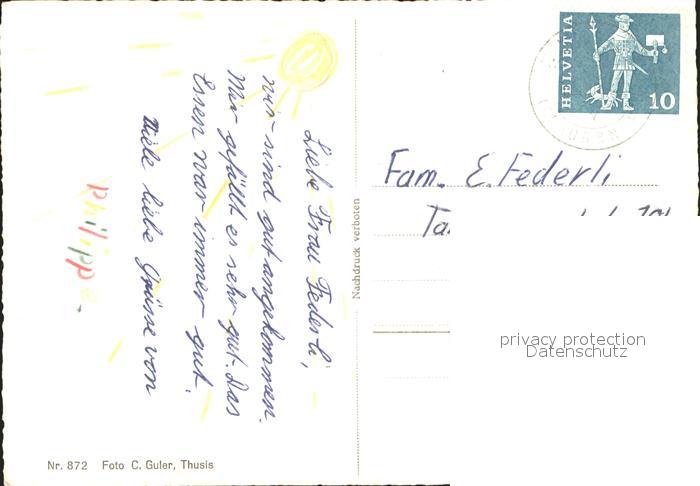 Liebe Frau Federli,
wir sind gut angekommen.
Mir gefällt es sehr gut. Das
Essen war immer gut.
Viele liebe Grüsse von
Philippe.
Nr. 872 Foto C. Guler, Thusis
Nachdruck verboten
HELVETIA
10
Fam. E. Federli
privacy protection
Datenschutz